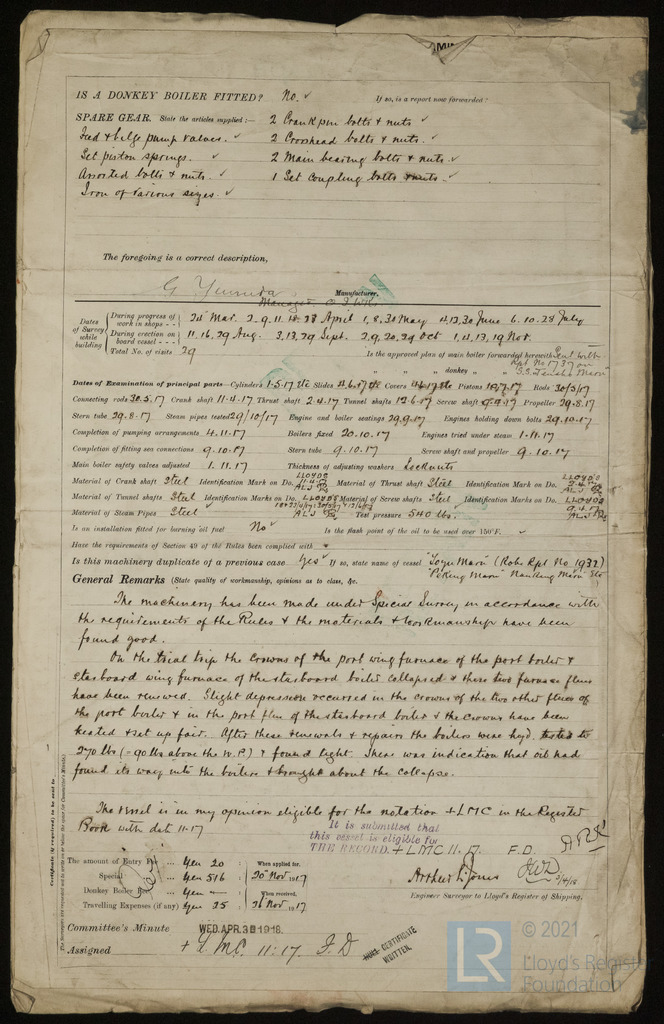 IS A DONKEY BOILER FITTED? No. ✓ If so, is a report now forwarded?
SPARE GEAR. State the articles supplied:— 2 Crankpin bolts & nuts. ✓
Feed & bilge pump valves. ✓ 2 Crosshead bolts & nuts. ✓
Set piston springs. ✓ 2 Main bearing bolts & nuts. ✓
Assorted bolts & nuts. ✓ 1 Set coupling bolts & nuts. ✓
Iron of various sizes. ✓
The foregoing is a correct description,
Manufacturer.
Manager
Dates of Survey while building
During progress of work in shops - - 24 Mar. 2. 9. 11. April 1. 8. 30 May 4. 13. 30 June 6. 10. 28 July
During erection on board vessel - - - 11. 16. 29 Aug. 3. 13. 29 Sept. 2. 9. 20. 29 Oct 1. 4. 13. 19 Nov.
Total No. of visits 29
Is the approved plan of main boiler forwarded herewith Sent with
Rpt No 1737 on
" " " donkey " "
Dates of Examination of principal parts—Cylinders 1.5.17 etc Slides 4.6.17 etc Covers Pistons Rods 30/5/17
Connecting rods 30.5.17 Crank shaft 11.4.17 Thrust shaft 2.4.17 Tunnel shafts 12.6.17 Screw shaft Propeller 29.8.17
Stern tube 29.8.17 Steam pipes tested 29/10/17 Engine and boiler seatings 29.9.17 Engines holding down bolts 29.10.17
Completion of pumping arrangements 4.11.17 Boilers fixed 20.10.17 Engines tried under steam 1.11.17
Completion of fitting sea connections 9.10.17 Stern tube 9.10.17 Screw shaft and propeller 9.10.17
Main boiler safety valves adjusted 1.11.17 Thickness of adjusting washers Locknuts
Material of Crank shaft Steel Identification Mark on Do. LLOYDS 11.4.17 ALJ Material of Thrust shaft Steel Identification Mark on Do. LLOYDS 2.4.17 ALJ
Material of Tunnel shafts Steel Identification Marks on Do. LLOYDS ALJ Material of Screw shafts Steel Identification Marks on Do. LLOYDS ALJ
Material of Steam Pipes Steel ✓ Test pressure 540 lbs.
Is an installation fitted for burning oil fuel No ✓ Is the flash point of the oil to be used over 150°F. ✓
Have the requirements of Section 49 of the Rules been complied with ✓
Is this machinery duplicate of a previous case Yes ✓ If so, state name of vessel "Toyu Maru" (Kobe Rpt No 1932)
"Peking Maru" "Nanking Maru" Etc
General Remarks (State quality of workmanship, opinions as to class, &c.
The machinery has been made under Special Survey in accordance with
the requirements of the Rules & the materials & workmanship have been
found good.
On the trial trip the crowns of the port wing furnace of the port boiler &
starboard wing furnace of the starboard boiler collapsed & these two furnace flues
have been renewed. Slight depression occurred in the crowns of the two other flues of
the port boiler & in the port flue of the starboard boiler & the crowns have been
heated & set up fair. After these renewals & repairs the boilers were hyd. tested to
270 lbs (= 90 lbs above the W.P.) & found tight. There was indication that oil had
found its way into the boilers & brought about the collapse.
The vessel is in my opinion eligible for the notation + LMC in the Register
Book with date 11.17
It is submitted that
this vessel is eligible for
THE RECORD. + LMC 11.17. F.D.
The amount of Entry Fee ... Yen 20 : When applied for,
Special ... Yen 516 : 20 Nov 1917
Donkey Boiler Fee ... Yen — : When received,
Travelling Expenses (if any) Yen 25 : Nov 1917
Arthur L. Jones
Engineer Surveyor to Lloyd's Register of Shipping.
Committee's Minute WED. APR. 3 1918
Assigned + LMC. 11:17. F.D
CERTIFICATE WRITTEN.
Certificate (if required) to be sent to
LR © 2021
Lloyd's Register
Foundation